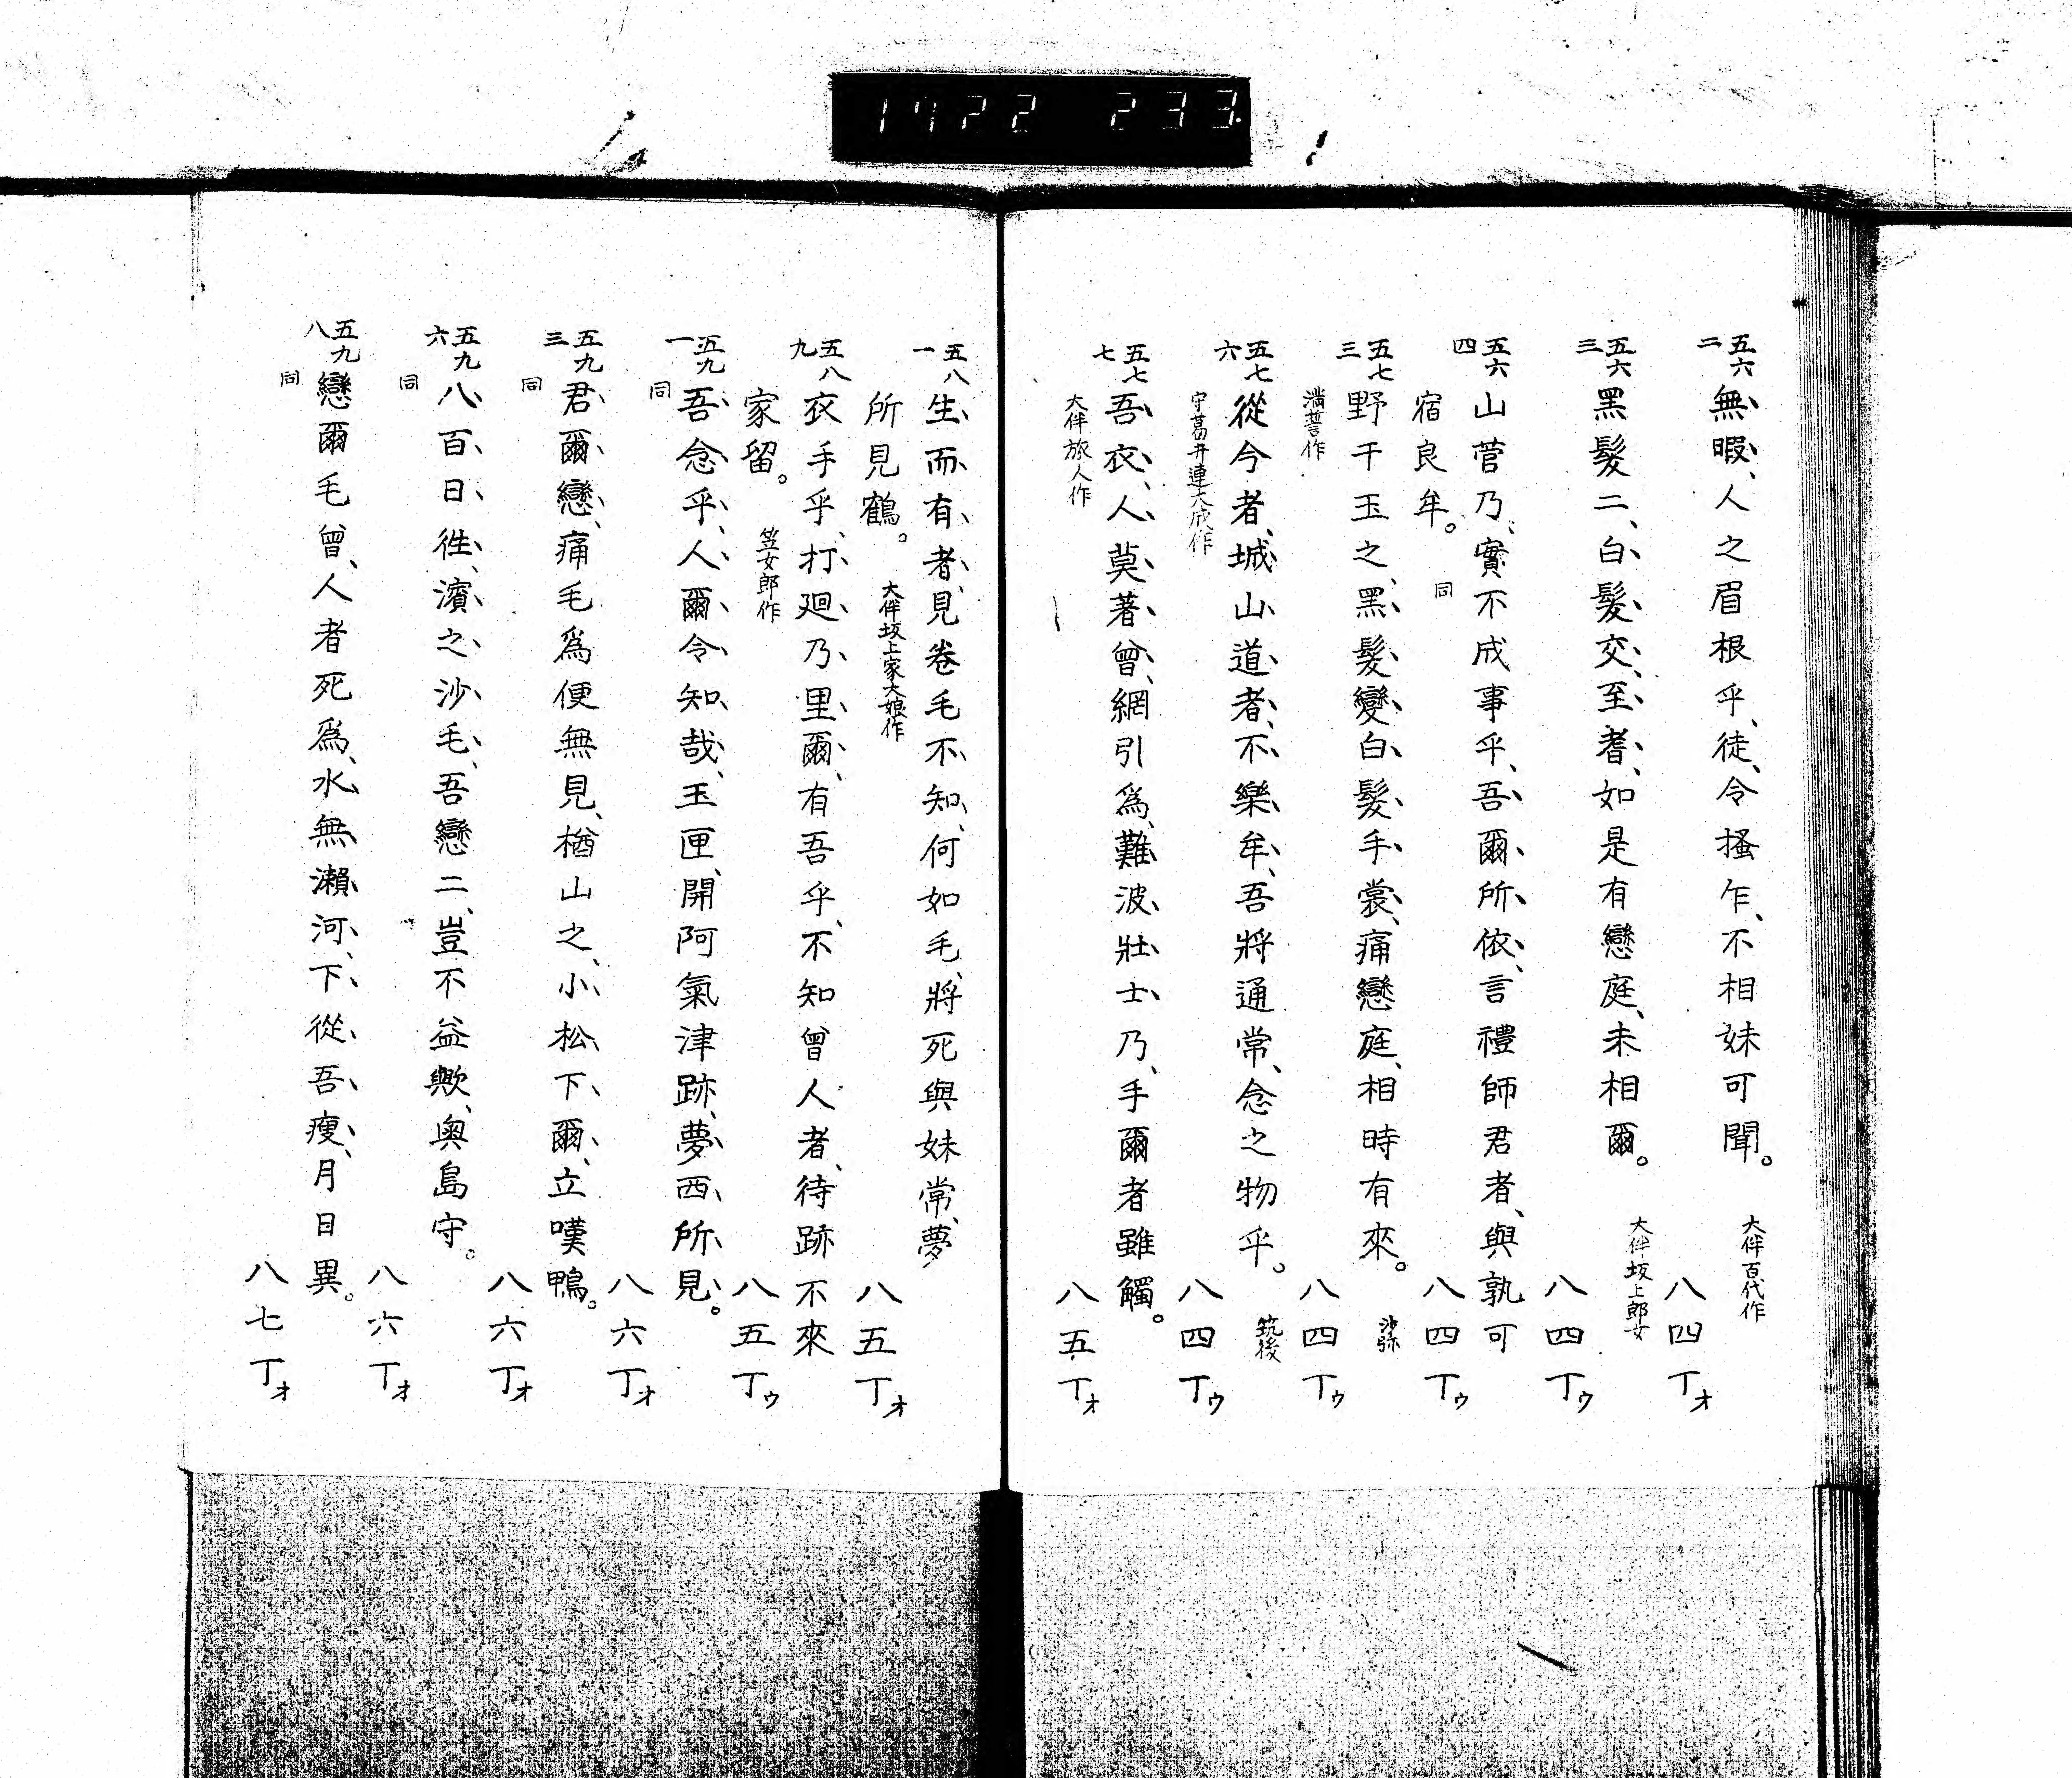 1722 233
五六二 無暇、人之眉根乎、徒、令搔乍、不相妹可聞。 大伴百代作
八四丁オ
五六三 黑髮二、白髮交、至耆、如是有戀庭、未相爾。 大伴坂上郎女
八四丁ウ
五六四 山菅乃、實不成事乎、吾爾所依、言禮師君者、與孰可
宿良牟。 同
八四丁ウ
五七三 野干玉之、黑髮變白髮手裳、痛戀庭、相時有來。 沙弥
滿誓作
八四丁ウ
五七六 從今者、城山道者、不樂牟、吾將通常、念之物乎。 筑後
守葛井連大成作
八四丁ウ
五七七 吾衣、人莫著曾、網引爲、難波壯士乃、手爾者雖觸。
大伴旅人作
八五丁オ
五八一 生而有者、見卷毛不知、何如毛、將死與妹常、夢
所見鶴。 大伴坂上家大娘作
八五丁オ
五八九 衣手乎、打廻乃里爾、有吾乎、不知曾人者、待跡不來
家留。 笠女郎作
八五丁ウ
五九一 吾念乎、人爾令知哉、玉匣、開阿氣津跡、夢西所見。
同
八六丁オ
五九三 君爾戀、痛毛爲便無見、楢山之、小松下爾、立嘆鴨。
同
八六丁オ
五九六 八百日徃、濱之沙毛、吾戀二、豈不益歟、奧島守。
同
八六丁オ
五九八 戀爾毛曾、人者死爲、水無瀨河、下從吾瘦、月日異。
同
八七丁オ